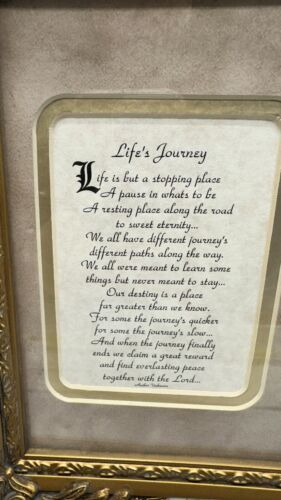 Life's Journey
Life is but a stopping place
A pause in whats to be
A resting place along the road
to sweet eternity...
We all have different journey's
different paths along the way.
We all were meant to learn some
things but never meant to stay...
Our destiny is a place
far greater than we know.
For some the journey's quicker
for some the journey's slow...
And when the journey finally
ends we claim a great reward
and find everlasting peace
together with the Lord...
Author Unknown